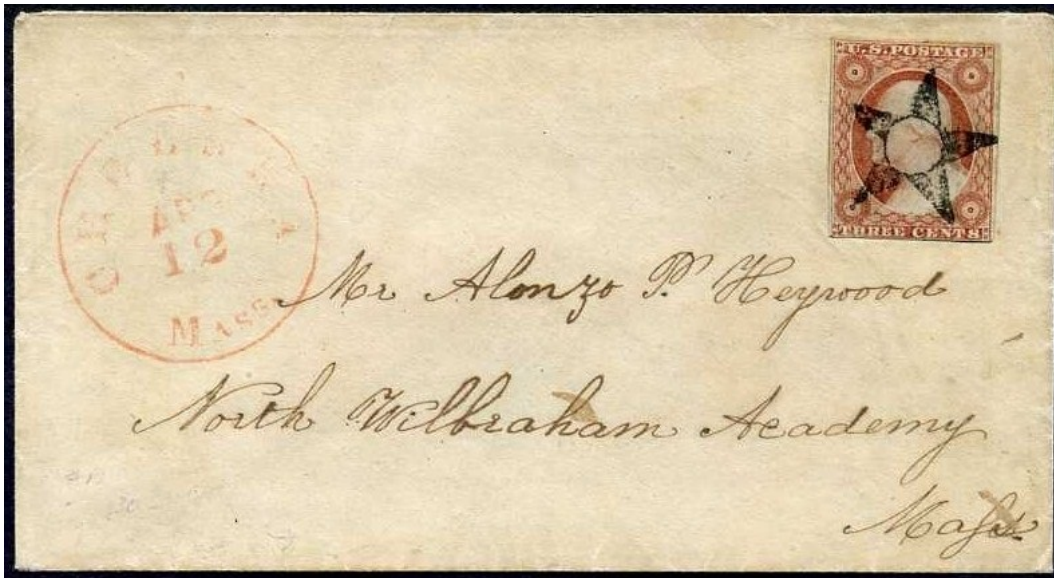 U.S.POSTAGE
THREE CENTS
CHELSEA
APR
12
MASS.
Mr Alonzo P. Heywood
North Wilbraham Academy
Mass.